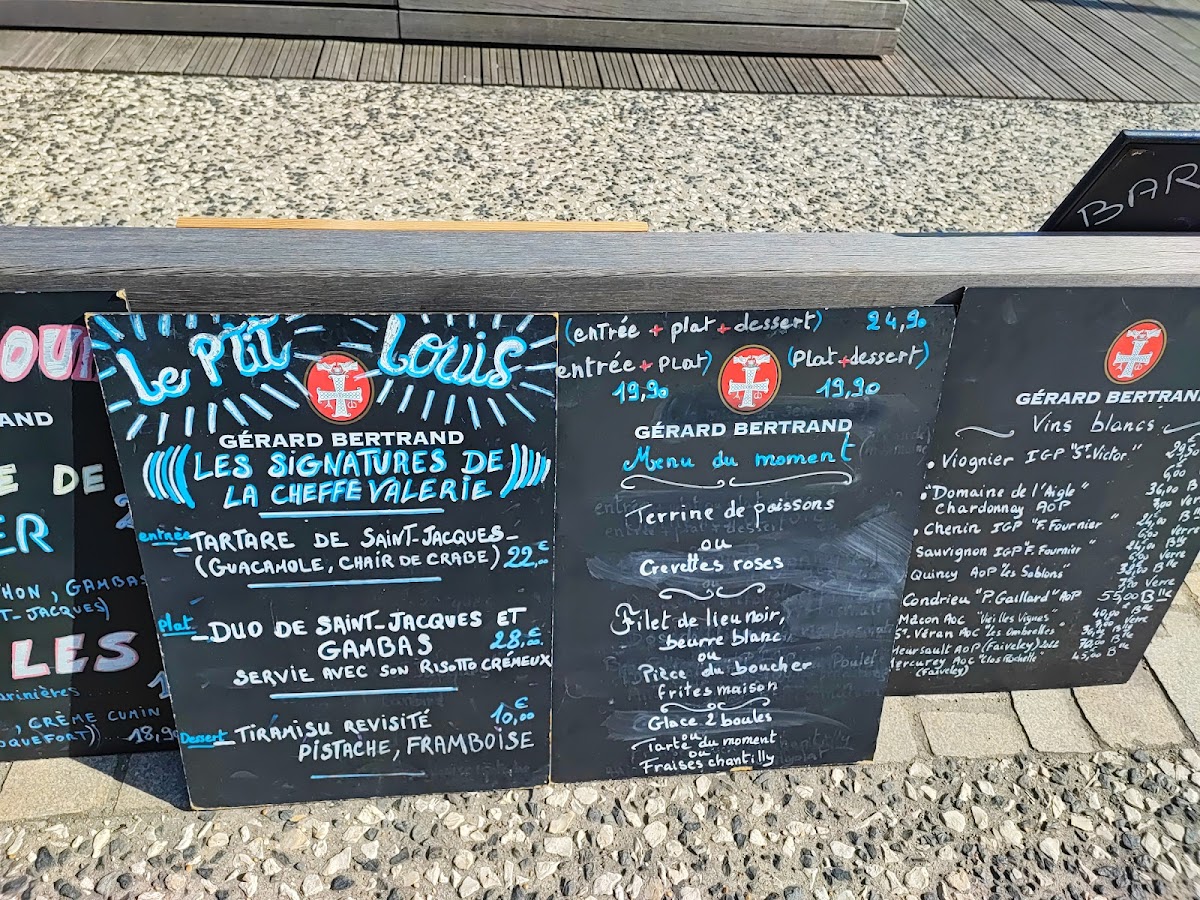 BAR
OUI
AND
E DE
ER
HON, GAMBAS
T-JACQUES)
LES
arinières
, CRÈME CUMIN
OQUEFORT) 18,90
Le P'tit Louis
GÉRARD BERTRAND
LES SIGNATURES DE
LA CHEFFE VALERIE
entrée
- TARTARE DE SAINT-JACQUES -
(GUACAMOLE, CHAIR DE CRABE) 22,00€
plat
- DUO DE SAINT-JACQUES ET
GAMBAS 28,00€
SERVIE AVEC SON RISOTTO CRÉMEUX
Dessert - TIRAMISU REVISITÉ 10,00€
PISTACHE, FRAMBOISE
(entrée + plat + dessert) 24,90
entrée + plat) (Plat + dessert)
19,90 19,90
GÉRARD BERTRAND
Menu du moment
Terrine de poissons
ou
Crevettes roses
Filet de lieu noir,
beurre blanc
ou
Pièce du boucher
frites maison
Glace 2 boules
ou
Tarte du moment
ou
Fraises chantilly
GÉRARD BERTRAN
Vins blancs
• Viognier IGP "St Victor"
• "Domaine de l'Aigle"
Chardonnay AOP
• Chenin IGP "F. Fournier"
Sauvignon IGP "F. Fournier"
Quincy AOP "Les Sablons"
Condrieu "P. Gaillard" AOP 55,00 Blle
Mâcon AOC "Vieilles Vignes"
St. Véran AOC "Les Ombrelles"
Meursault AOP (Faiveley) 2022
Mercurey AOC "Clos Rochette" 45,00 Blle
(Faiveley)